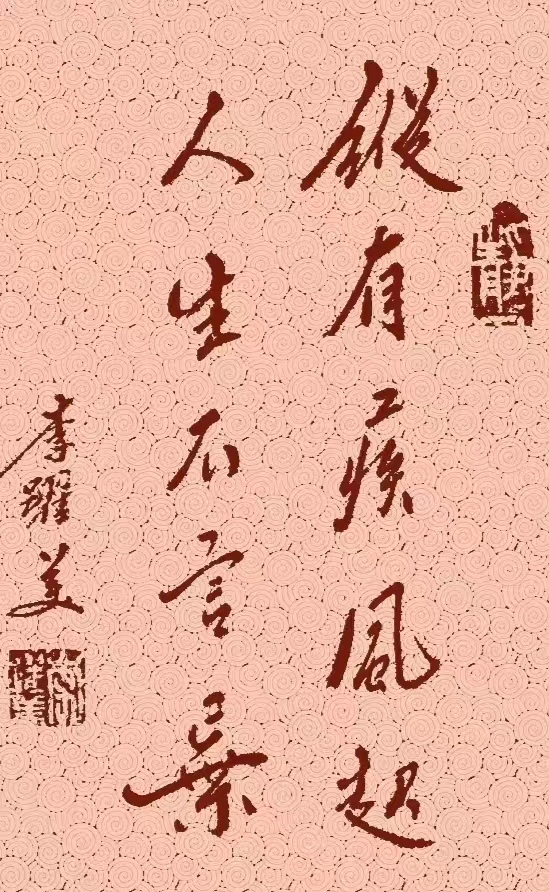 縱有疾風起
人生不言棄
李躍美